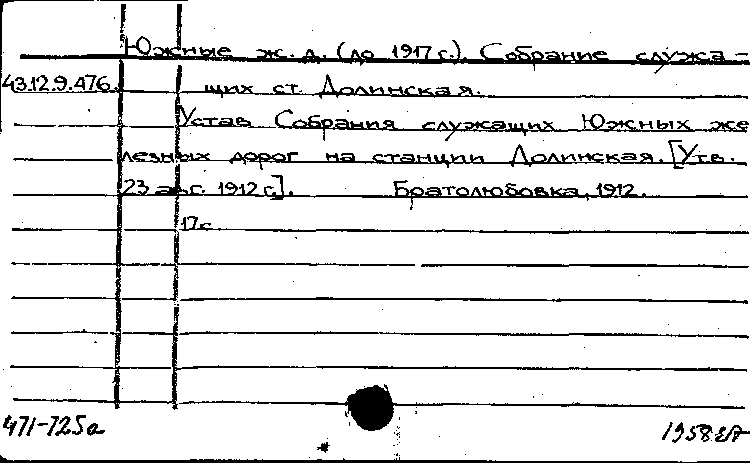 Южные ж. д. (до 1917 г.). Собрание служа-
43.12.9.476. щих ст. Долинская.
Устав Собрания служащих Южных же
лезных дорог на станции Долинская. [Утв.
23 авг. 1912 г.]. Братолюбовка, 1912.
17с.
471-725а
1958